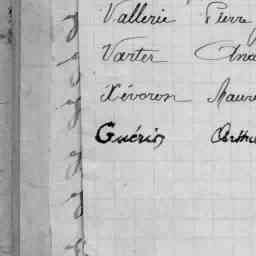 Vallerie Pierre
Varter
Xévoron Maur
Guérin Arthu